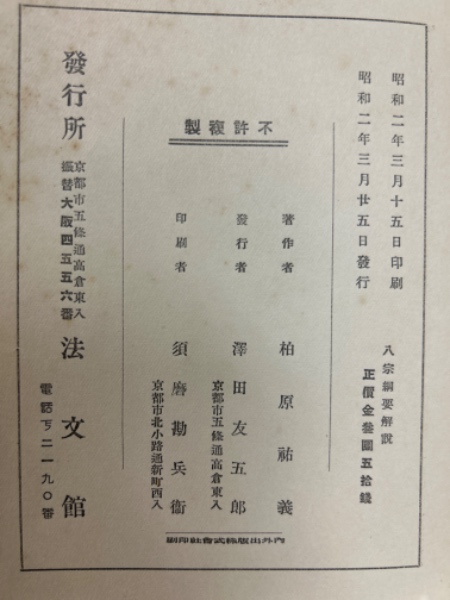 昭和二年三月十五日印刷
昭和二年三月廿五日發行
八宗綱要解説
正價金叁圓五拾錢
不許複製
著作者 柏原祐義
發行者 澤田友五郎
京都市五條通高倉東入
印刷者 須磨勘兵衞
京都市北小路通新町西入
內外出版株式會社印刷
發行所 京都市五條通高倉東入 法文館
振替大阪四五五六番
電話下二一九〇番